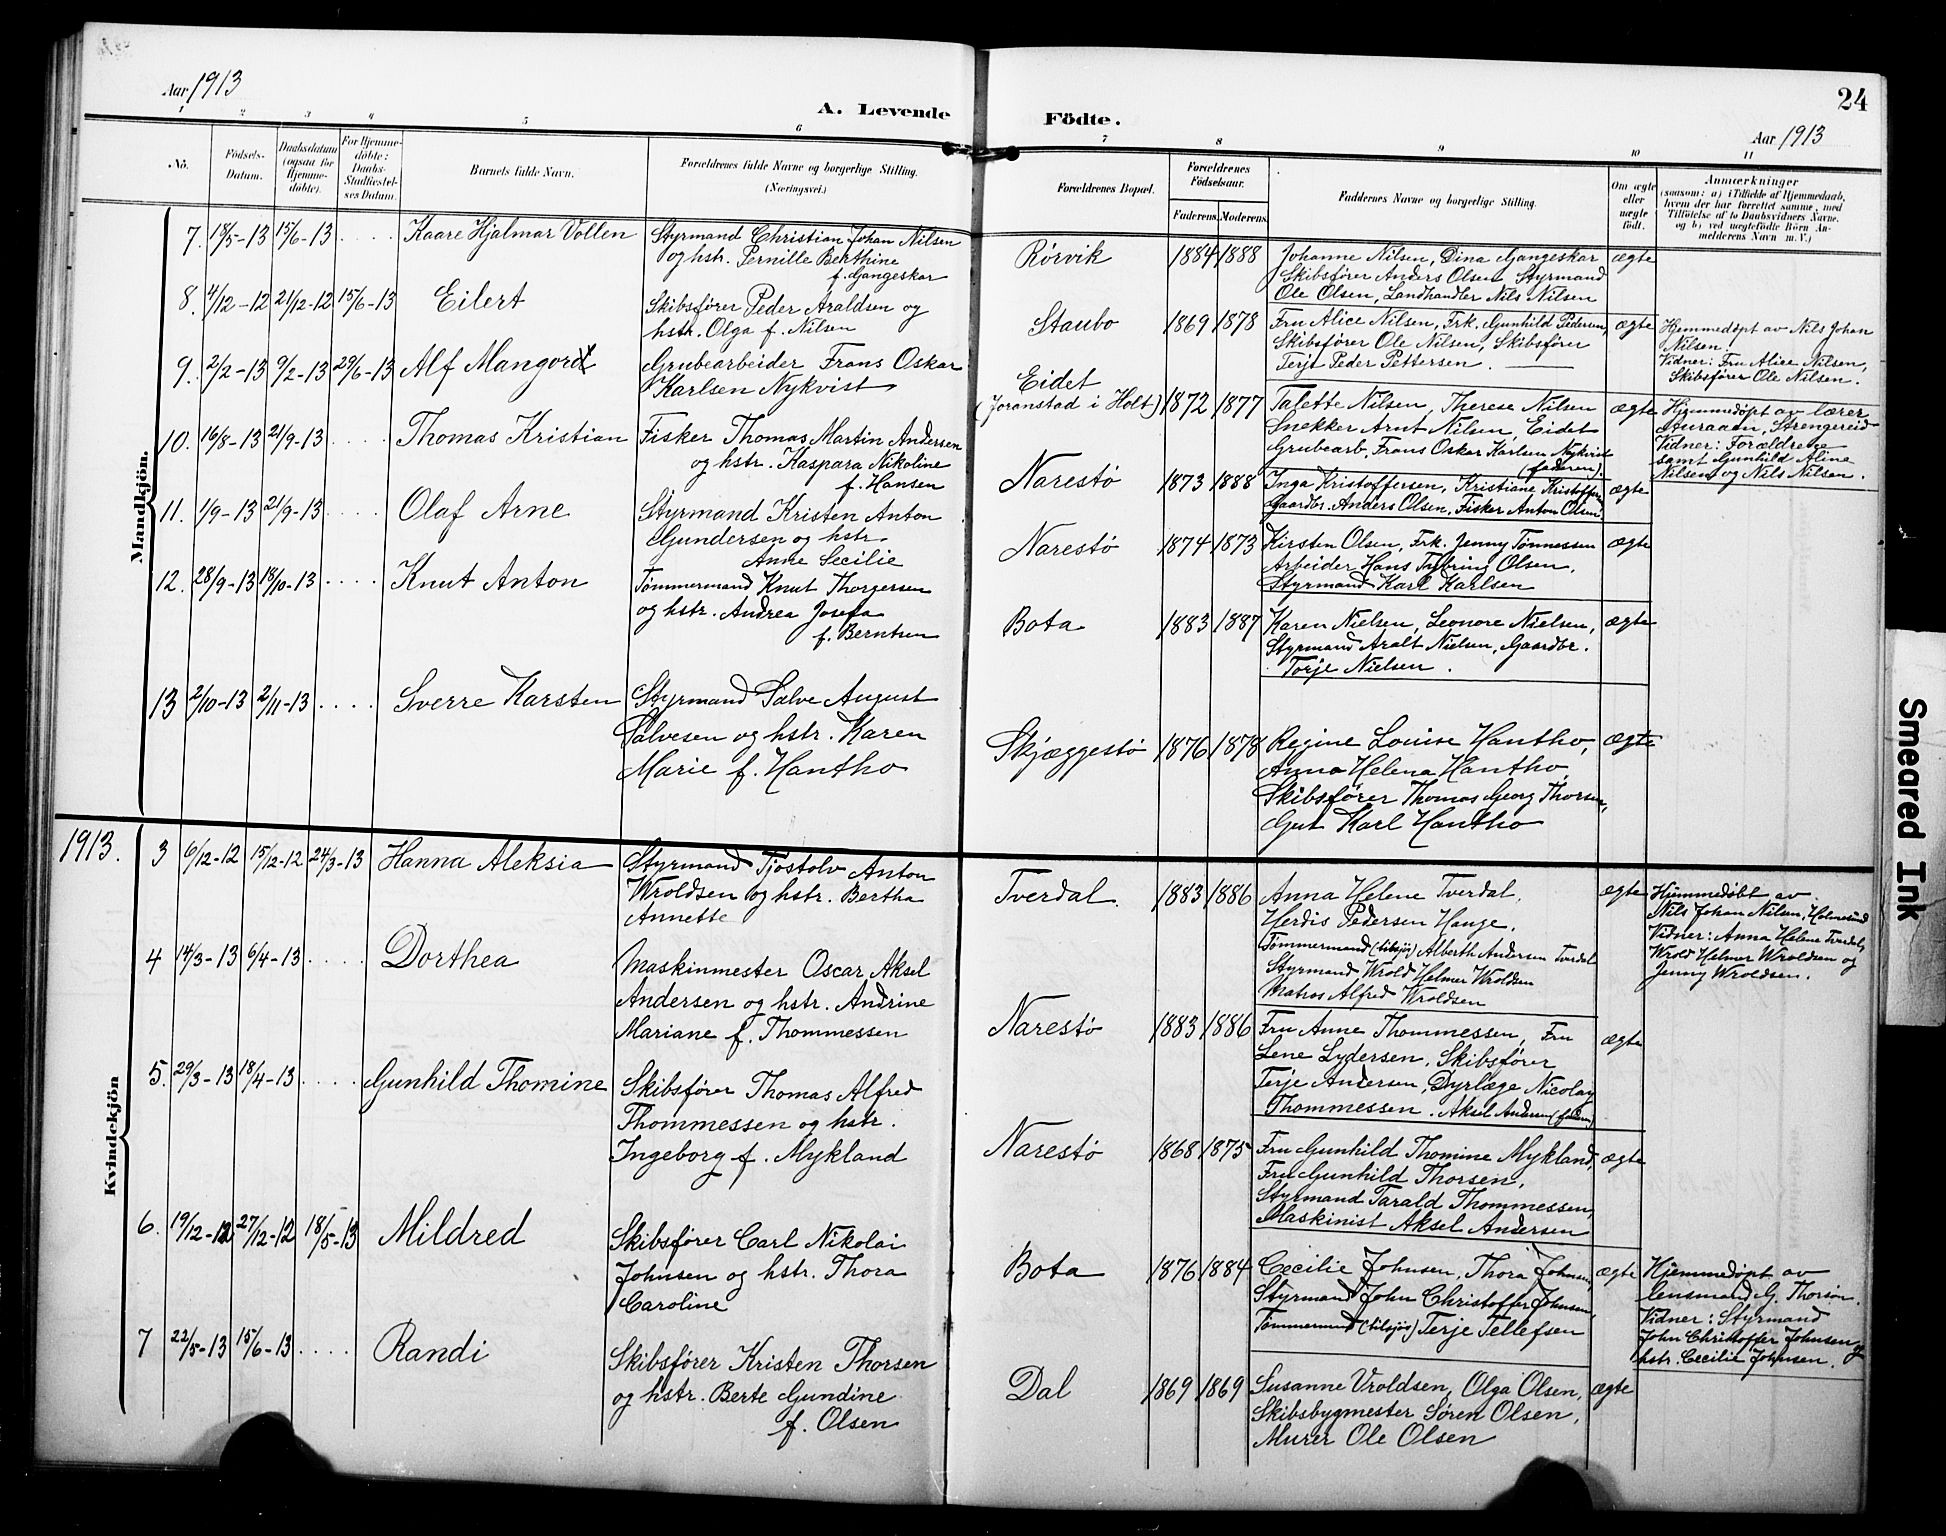 Aar 1913
A. Levende
1 2 3 4 5 6
No.
Födsels-
Datum.
Daabsdatum
(ogsaa for
Hjemme-
döbte).
For Hjemme-
döbte:
Daabs-
Stadfæstel-
ses Datum.
Barnets fulde Navn.
Forældrenes fulde Navne og borgerlige Stilling.
(Næringsvei.)
Mandkjön.
7. 18/5-13 15/6-13 . . . . Kaare Hjalmar Vollen Styrmand Christian Johan Nilsen
og hstr. Pernille Berthine
f. Gangeskar
8. 4/12-12 21/12-12 15/6-13 Eilert Skibsfører Peder Araldsen og
hstr. Olga f. Nilsen
9. 2/2-13 9/2-13 29/6-13 Alf Mangord Grubearbeider Frans Oskar
Karlsen Nykvist
10. 16/8-13 21/9-13 . . . . Thomas Kristian Fisker Thomas Martin Andersen
og hstr. Kaspara Nikoline
f. Hansen
11. 1/9-13 21/9-13 . . . . Olaf Arne Styrmand Kristen Anton
Gundersen og hstr.
Anne Cecilie
12. 28/9-13 18/10-13 . . . . Knut Anton Tømmermand Knut Thorgersen
og hstr. Andrea Josefa
f. Berntsen
13 2/10-13 2/11-13 . . . . Sverre Karsten Styrmand Salve August
Salvesen og hstr. Karen
Marie f. Hantho
1913.
Kvindekjön
3 6/12-12 15/12-12 24/3-13 Hanna Aleksia Styrmand Tjostolv Anton
Wroldsen og hstr. Bertha
Annette
4 14/3-13 6/4-13 . . . . Dorthea Maskinmester Oscar Aksel
Andersen og hstr. Andrine
Mariane f. Thommessen
5. 29/3-13 18/4-13 . . . . Gunhild Thomine Skibsfører Thomas Alfred
Thommessen og hstr.
Ingeborg f. Mykland
6. 19/12-12 27/12-12 18/5-13 Mildred Skibsfører Carl Nikolai
Johnsen og hstr. Thora
Caroline
7 22/5-13 15/6-13 . . . . Randi Skibsfører Kristen Thorsen
og hstr. Berte Gundine
f. Olsen
24
Födte.
Aar 1913
7 8 9 10 11
Forældrenes Bopæl.
Forældrenes
Födselsaar.
Faderens. Moderens.
Faddernes Navne og borgerlige Stilling.
Om ægte
eller
uægte
födt.
Anmærkninger
(saasom: a) i Tilfælde af Hjemmedaab,
hvem der har forrettet samme, med
Tilföielse af to Daabsvidners Navne.
og b) ved uægtefödte Börn An-
melderens Navn m. V.)
Rörvik 1884 1888 Johanne Nilsen, Dina Gangeskar ægte
Skibsfører Anders Olsen Styrmand
Ole Olsen, Landhandler Nils Nilsen
Staubo 1869 1878 Fru Alice Nilsen, Frk. Gunhild Pedersen, ægte
Skibsfører Ole Nilsen, Skibsfører
Terje Peder Pettersen.
Hjemmedøpt av Nils Johan
Nilsen.
Vidner: Fru Alice Nilsen,
Skibsfører Ole Nilsen.
Eidet
(Joranstad i Holt) 1872 1877 Talette Nilsen, Therese Nilsen ægte
Snekker Arnt Nilsen, Eidet
Grubearb. Frans Oskar Karlsen Nykvist
(faderen).
Hjemmedøpt av lærer
Auraaen, Strengereid
Vidner: Forældrene
samt Gunhild Aline
Nilsen og Nils Nilsen.
Narestø 1873 1888 Inga Kristoffersen, Kristiane Kristoffersen ægte
Gaardbr. Anders Olsen, Fisker Anton Olsen.
Narestø 1874 1873 Kirsten Olsen, Frk. Jenny Tønnessen ægte
Arbeider Hans Tybring Olsen.
Styrmand Karl Karlsen
Bota 1883 1887 Karen Nielsen, Leonore Nielsen, ægte
Styrmand Aralt Nielsen, Gaardbr.
Torje Nielsen.
Skjæggestø 1876 1878 Regine Louise Hantho, ægte
Anna Helena Hantho
Skibsfører Thomas Georg Thorsen,
Gut Karl Hantho
Tverdal. 1883 1886 Anna Helene Tverdal. ægte
Herdis Pedersen Hauge.
Tømmermand (tilsjøs) Alberth Andersen Tverdal
Styrmand Wrold Helmer Wroldsen
Matros Alfred Wroldsen
Hjemmedøbt av
Nils Johan Nilsen, Holmesund
Vidner: Anna Helene Tverdal,
Wrold Helmer Wroldsen og
Jenny Wroldsen.
Narestø 1883 1886 Fru Anne Thommessen, Fru ægte
Lene Lydersen, Skibsfører
Terje Andersen, Dyrlæge Nicolay
Thommessen. Aksel Andersen (faderen)
Narestø 1868 1875 Fru Gunhild Thomine Mykland, ægte
Fru Gunhild Thorsen,
Styrmand Tarald Thommessen,
Maskinist Aksel Andersen
Bota 1876 1884 Cecilie Johnsen, Thora Johnsen, ægte
Styrmand John Christoffer Johnsen,
Tømmermand (tilsjøs) Terje Tellefsen
Hjemmedøpt av
lensmand G. Thorsön.
Vidner: Styrmand
John Christoffer Johnsen og
hstr. Cecilie Johnsen.
Dal 1869 1869 Susanne Vroldsen, Olga Olsen, ægte
Skibsbygmester Søren Olsen,
Murer Ole Olsen
Smeared Ink